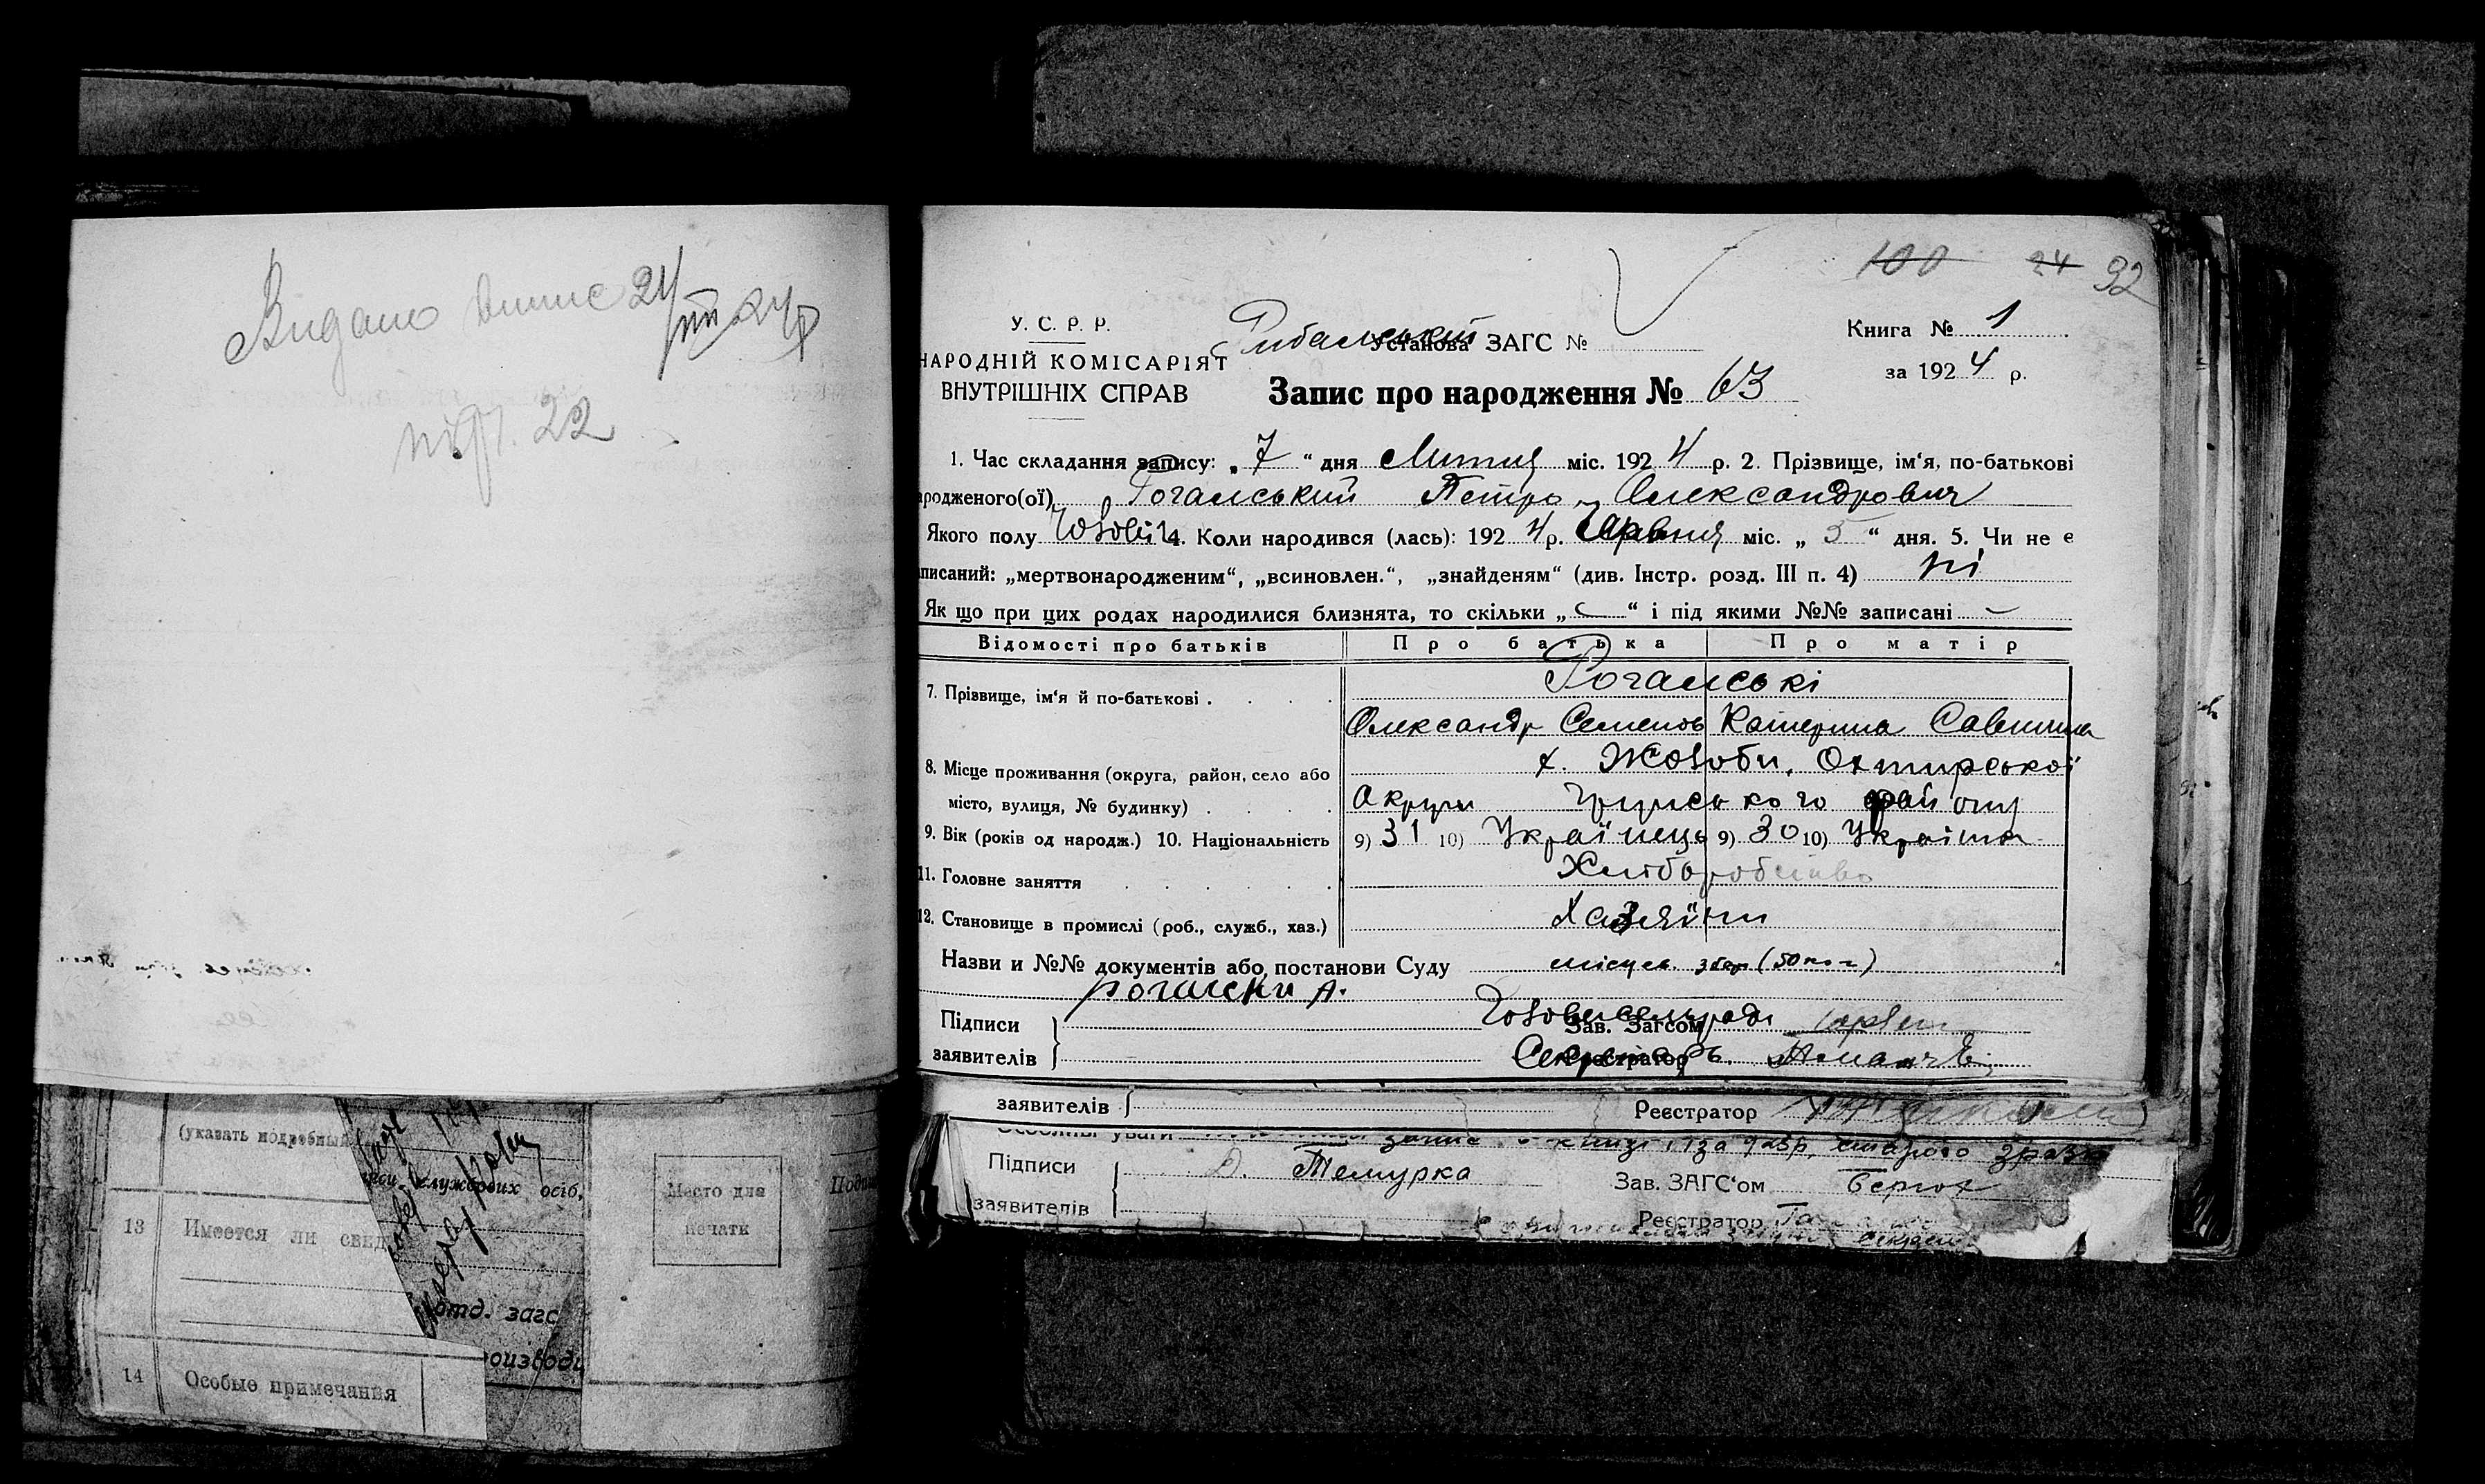 Видано випис 24/VII 24 р
100 24 92
У. С. Р. Р.
НАРОДНІЙ КОМІСАРІЯТ
ВНУТРІШНІХ СПРАВ
Рибальський
Установа ЗАГС №
Книга № 1
за 1924 р.
Запис про народження № 63
1. Час складання запису: „7“ дня Липня міс. 1924 р. 2. Прізвище, ім‘я, по-батькові
ародженого(ої) Роганський Петро Олександрович
Якого полу чоловіч 4. Коли народився (лась): 1924 р. Червня міс. „5“ дня. 5. Чи не є
писаний: „мертвонародженим“, „всиновлен.“, „знайденям“ (див. Інстр. розд. III п. 4) ні
Як що при цих родах народилися близнята, то скільки „ — “ і під якими №№ записані —
Відомості про батьків Про батька Про матір
7. Прізвище, ім‘я й по-батькові . Роганські
Олександр Семенов Катерина Савишна
8. Місце проживання (округа, район, село або х. Жолоби, Охтирської
місто, вулиця, № будинку) Округи району
9. Вік (років од народж.) 10. Національність 9) 31 10) Українець 9) 30 10) Українка
11. Головне заняття Хліборобство
12. Становище в промислі (роб., служб., хаз.) Хазяїни
Назви и №№ документів або постанови Суду місцев. збор (50 коп)
А.
Підписи Голова сельради
Зав. Загсом
заявителів Секретарь
Реєстратор
заявителів Реєстратор
Підписи Темурка Зав. ЗАГС‘ом
заявителів Реєстратор
(указать подробный
службових осіб,
13 Имеется ли свид
Место для
печати
отд. загс
14 Особые примечания